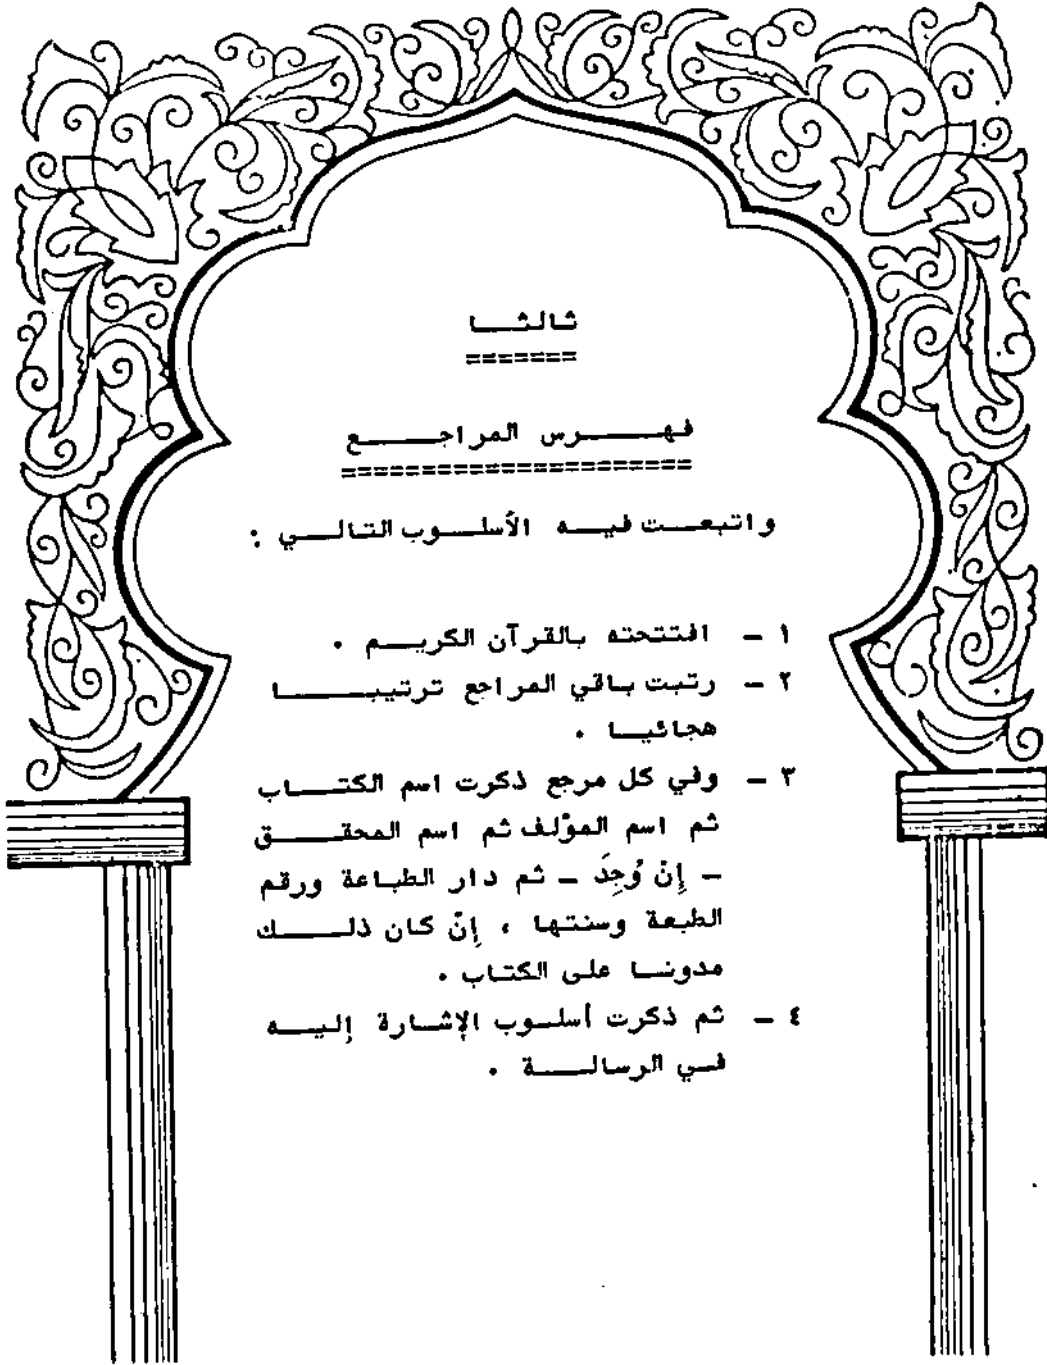 ثالثا
=======
فهرس المراجع
======================
واتبعت فيه الأسلوب التالي :
١ - افتتحته بالقرآن الكريم .
٢ - رتبت باقي المراجع ترتيبا
هجائيا .
٣ - وفي كل مرجع ذكرت اسم الكتاب
ثم اسم المؤلف ثم اسم المحقق
- إِنْ وُجِدَ - ثم دار الطباعة ورقم
الطبعة وسنتها ، إِنّ كان ذلك
مدونا على الكتاب .
٤ - ثم ذكرت أسلوب الإشارة إليه
في الرسالة .